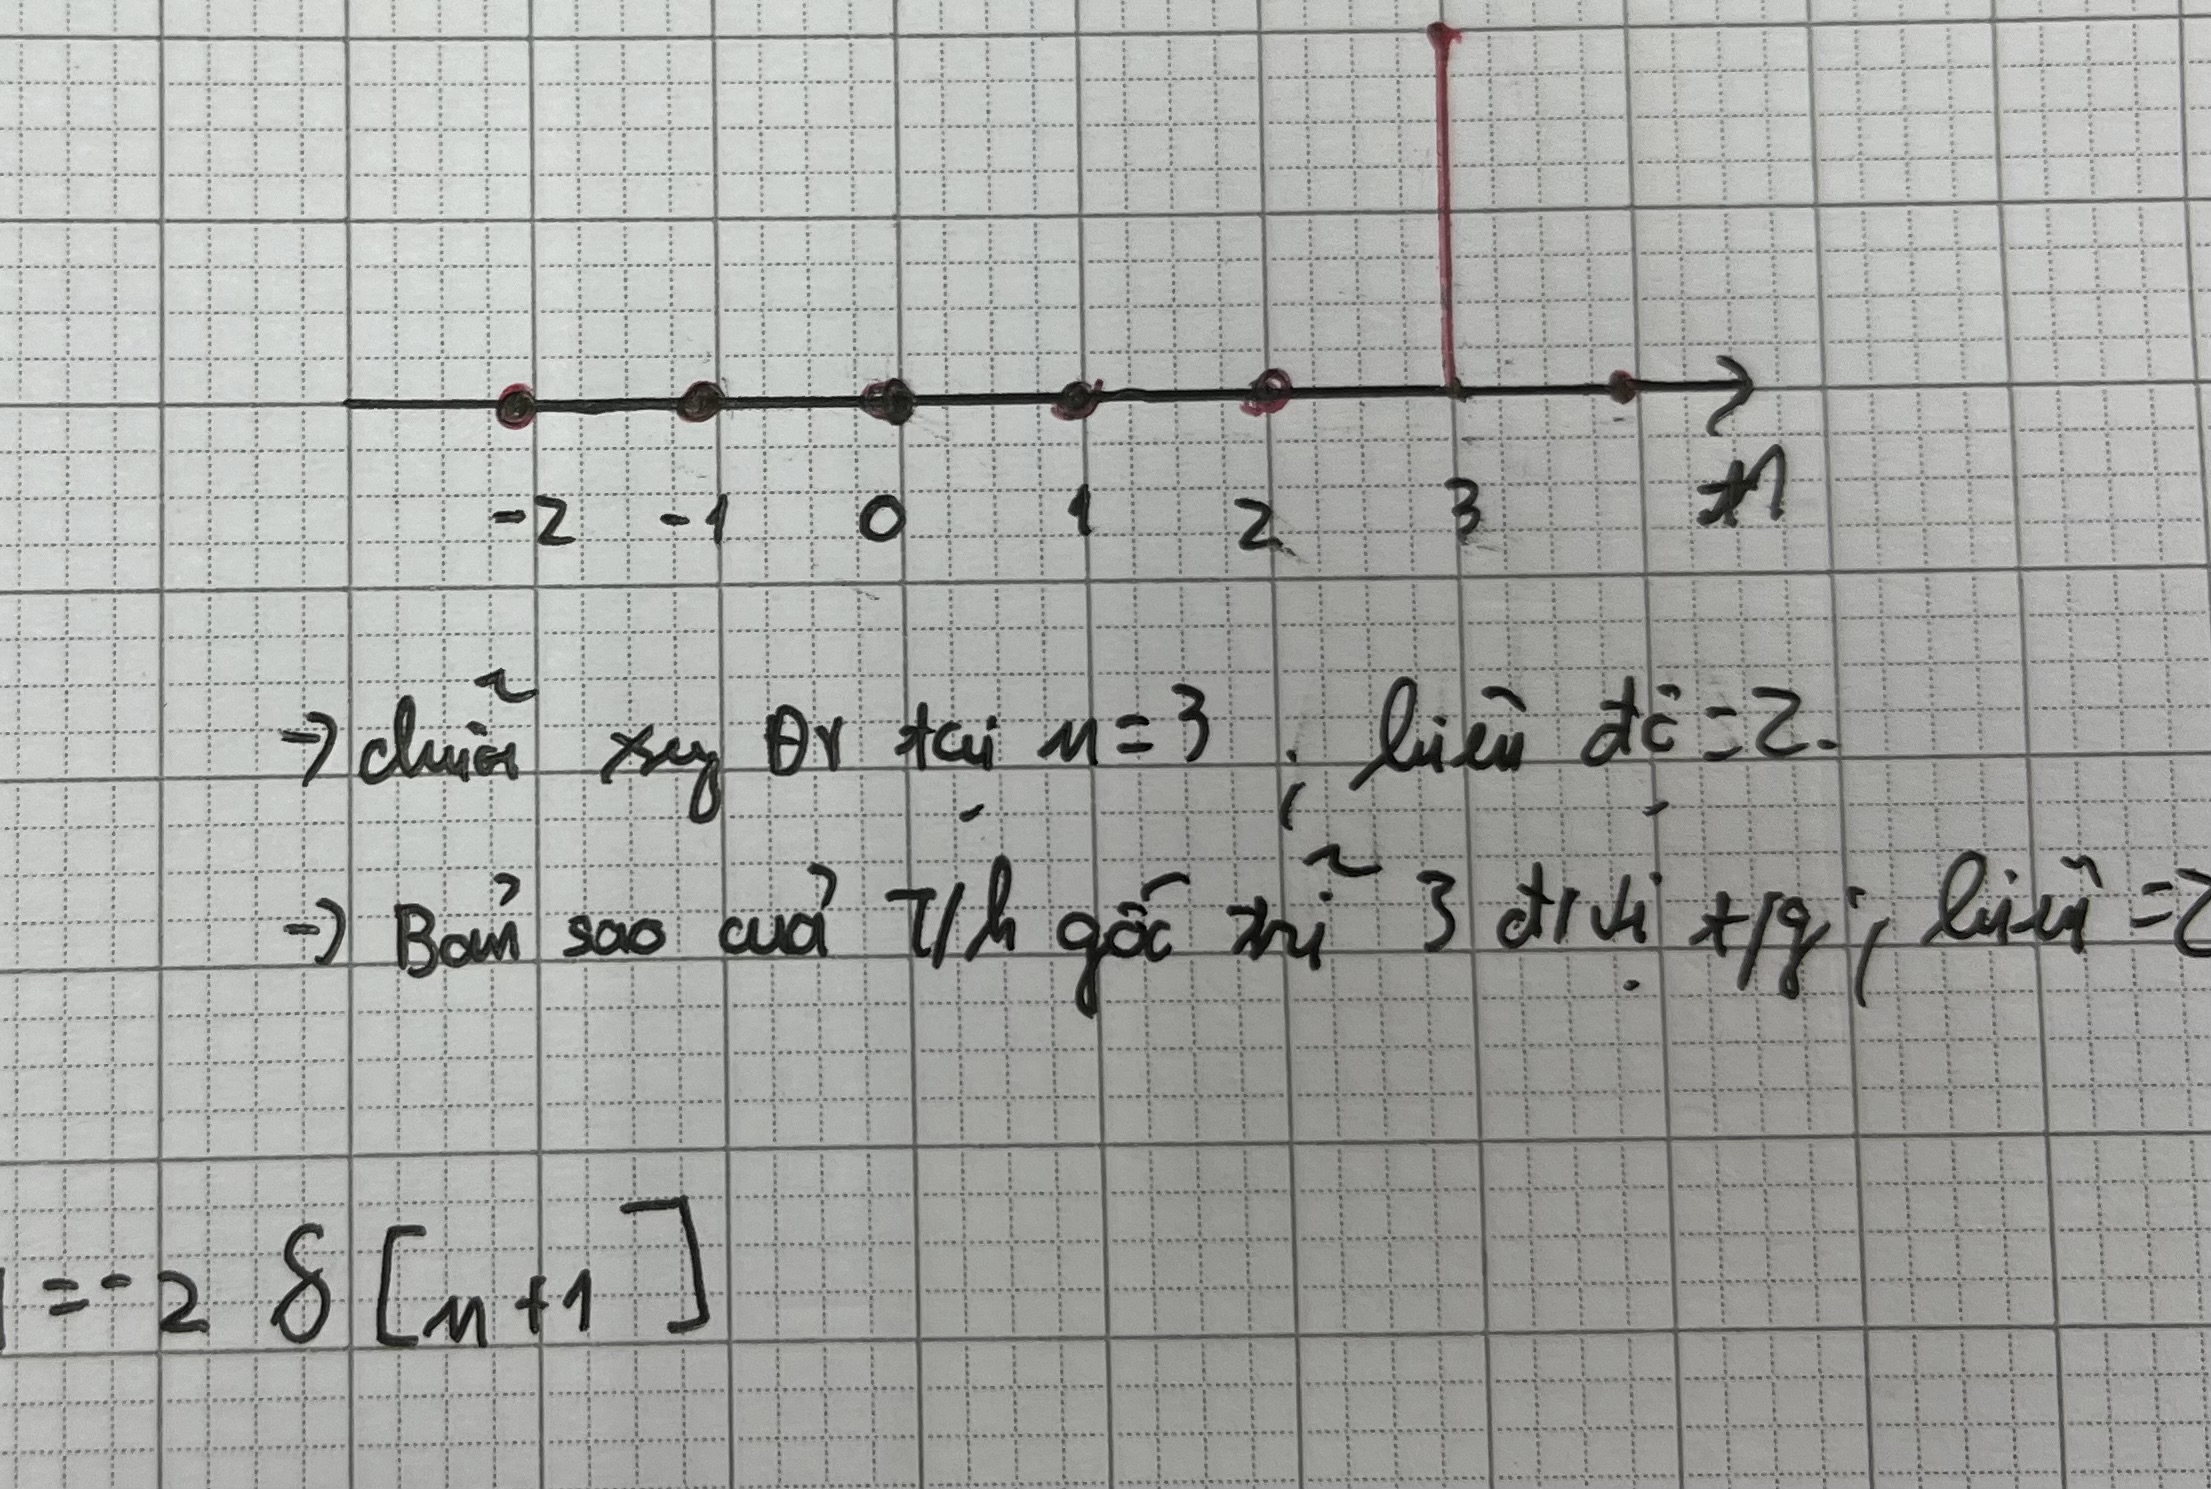 -2 -1 0 1 2 3 n
→ chuỗi xug tại n=3, biên độ =2.
→ Bản sao của T/h gốc trễ 3 đ/vị t/g, biên =2
= -2 δ[n+1]